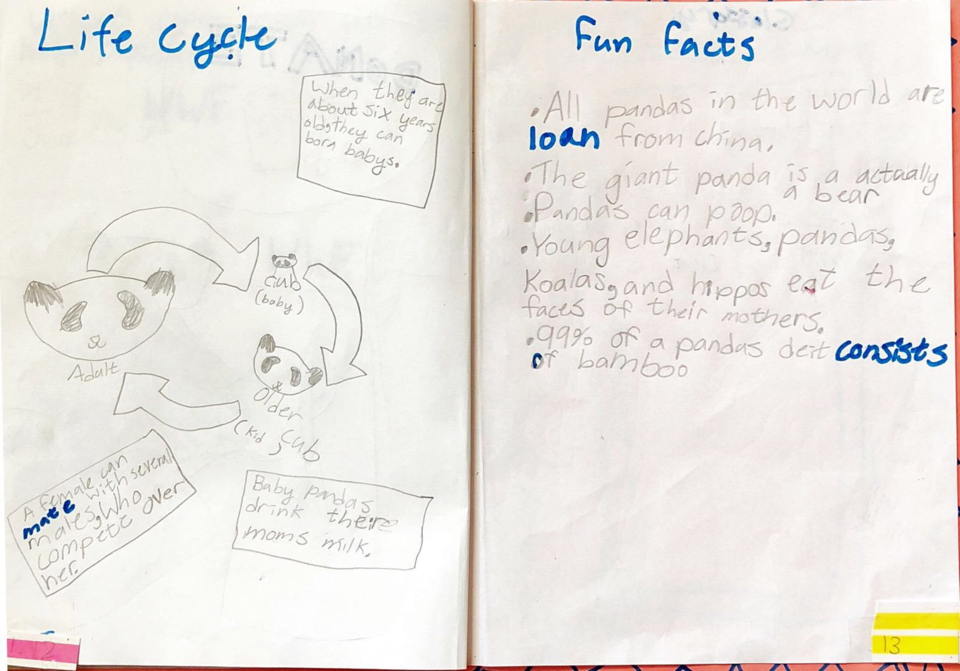 Life cycle
When they are
about six years
old,they can
born babys.
cub
(baby)
Adalt
Older
(kid) cub
A female can
mate with several
males,Who
compete over
her.
Baby pandas
drink there
moms milk.
12
Fun facts
•All pandas in the world are
loan from china.
•The giant panda is a actually
a bear
•Pandas can poop.
•Young elephants, pandas,
Koalas, and hippos eat the
faces of their mothers.
•99% of a pandas deit consists
of bamboo
13